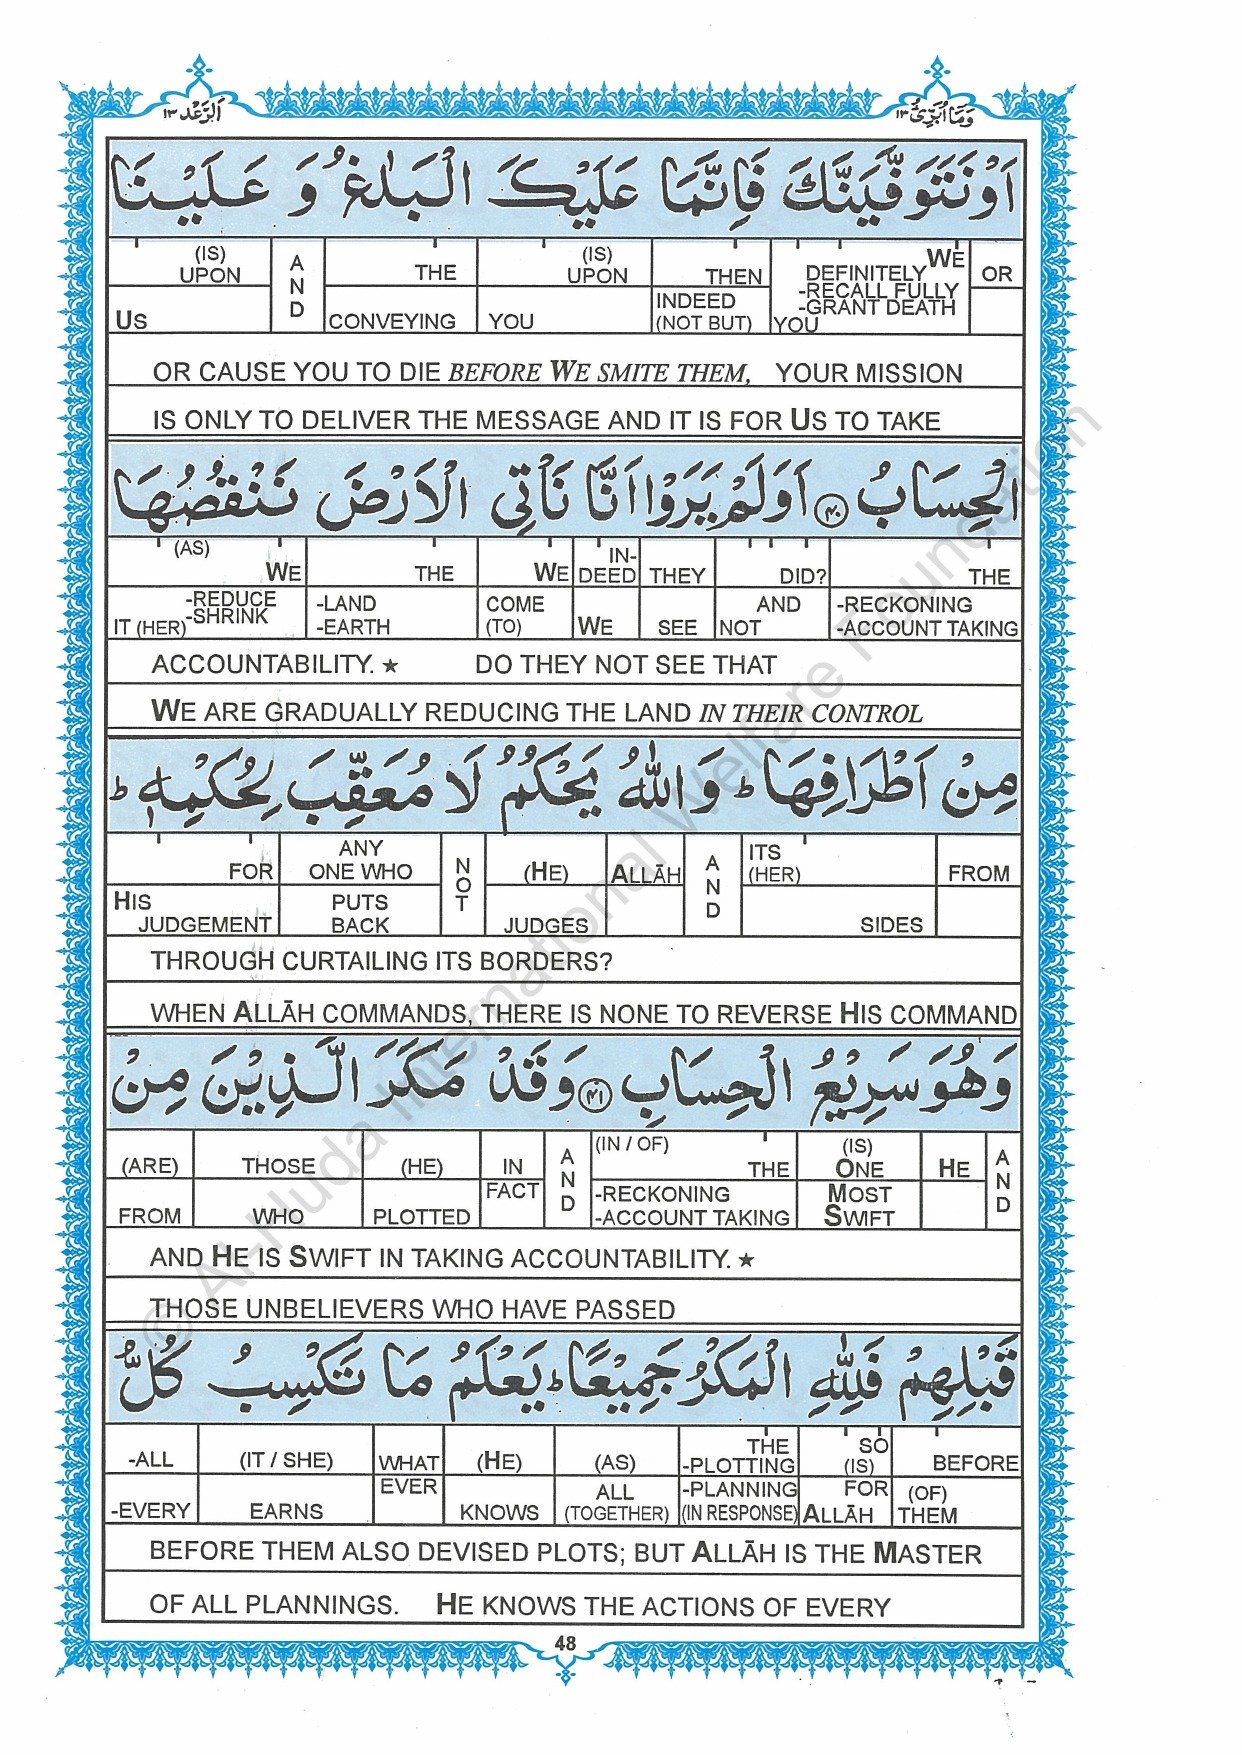 وَمَآ اُبَرِّئُ ١٣
اَلرَّعْد ١٣
اَوْ نَتَوَفَّيَنَّكَ فَاِنَّمَا عَلَيْكَ الْبَلٰغُ وَ عَلَيْنَا
(IS) UPON A N D THE (IS) UPON THEN WE DEFINITELY -RECALL FULLY -GRANT DEATH OR
US CONVEYING YOU INDEED (NOT BUT) YOU
OR CAUSE YOU TO DIE BEFORE WE SMITE THEM, YOUR MISSION
IS ONLY TO DELIVER THE MESSAGE AND IT IS FOR US TO TAKE
الْحِسَابُ ۴۰ اَوَلَمْ يَرَوْا اَنَّا نَاْتِى الْاَرْضَ نَنْقُصُهَا
(AS) WE THE WE IN-DEED THEY DID? THE
IT (HER) -REDUCE -SHRINK -LAND -EARTH COME (TO) WE SEE NOT AND -RECKONING -ACCOUNT TAKING
ACCOUNTABILITY. ★ DO THEY NOT SEE THAT
WE ARE GRADUALLY REDUCING THE LAND IN THEIR CONTROL
مِنْ اَطْرَافِهَا ؕ وَاللّٰهُ يَحْكُمُ لَا مُعَقِّبَ لِحُكْمِهٖ ؕ
FOR ANY ONE WHO N O T (HE) ALLĀH A N D ITS (HER) FROM
HIS JUDGEMENT PUTS BACK JUDGES SIDES
THROUGH CURTAILING ITS BORDERS?
WHEN ALLĀH COMMANDS, THERE IS NONE TO REVERSE HIS COMMAND
وَهُوَ سَرِيْعُ الْحِسَابِ ۴۱ وَقَدْ مَكَرَ الَّذِيْنَ مِنْ
(ARE) THOSE (HE) IN A N D (IN / OF) THE (IS) ONE HE A N D
FROM WHO PLOTTED FACT -RECKONING -ACCOUNT TAKING MOST SWIFT
AND HE IS SWIFT IN TAKING ACCOUNTABILITY. ★
THOSE UNBELIEVERS WHO HAVE PASSED
قَبْلِهِمْ فَلِلّٰهِ الْمَكْرُ جَمِيْعًا ؕ يَعْلَمُ مَا تَكْسِبُ كُلُّ
-ALL (IT / SHE) WHAT (HE) (AS) THE -PLOTTING SO (IS) BEFORE
-EVERY EARNS EVER KNOWS ALL (TOGETHER) -PLANNING (IN RESPONSE) FOR ALLĀH (OF) THEM
BEFORE THEM ALSO DEVISED PLOTS; BUT ALLĀH IS THE MASTER
OF ALL PLANNINGS. HE KNOWS THE ACTIONS OF EVERY
48
© Al-Huda International Welfare Foundation